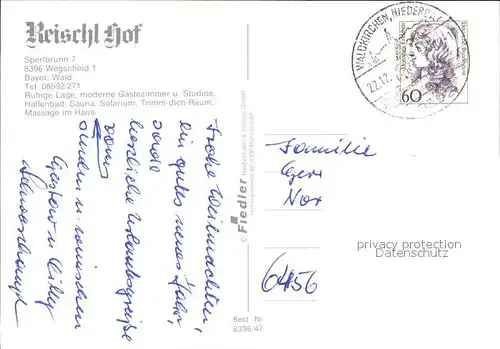 Reischl Hof
Sperlbrunn 7
8396 Wegscheid 1
Bayer. Wald
Tel 08592/271
Ruhige Lage, moderne Gästezimmer u. Studios,
Hallenbad, Sauna, Solarium, Trimm-dich-Raum,
Massage im Haus
Frohe Weihnachten,
ein gutes neues Jahr,
sowie
herzliche Urlaubsgrüße
von
Gustav u. Cilly
© Fiedler
Best Nr
8396/47
WALDKIRCHEN, NIEDERB
22.12.
60
Familie
Ger
Nor
6456
privacy protection
Datenschutz